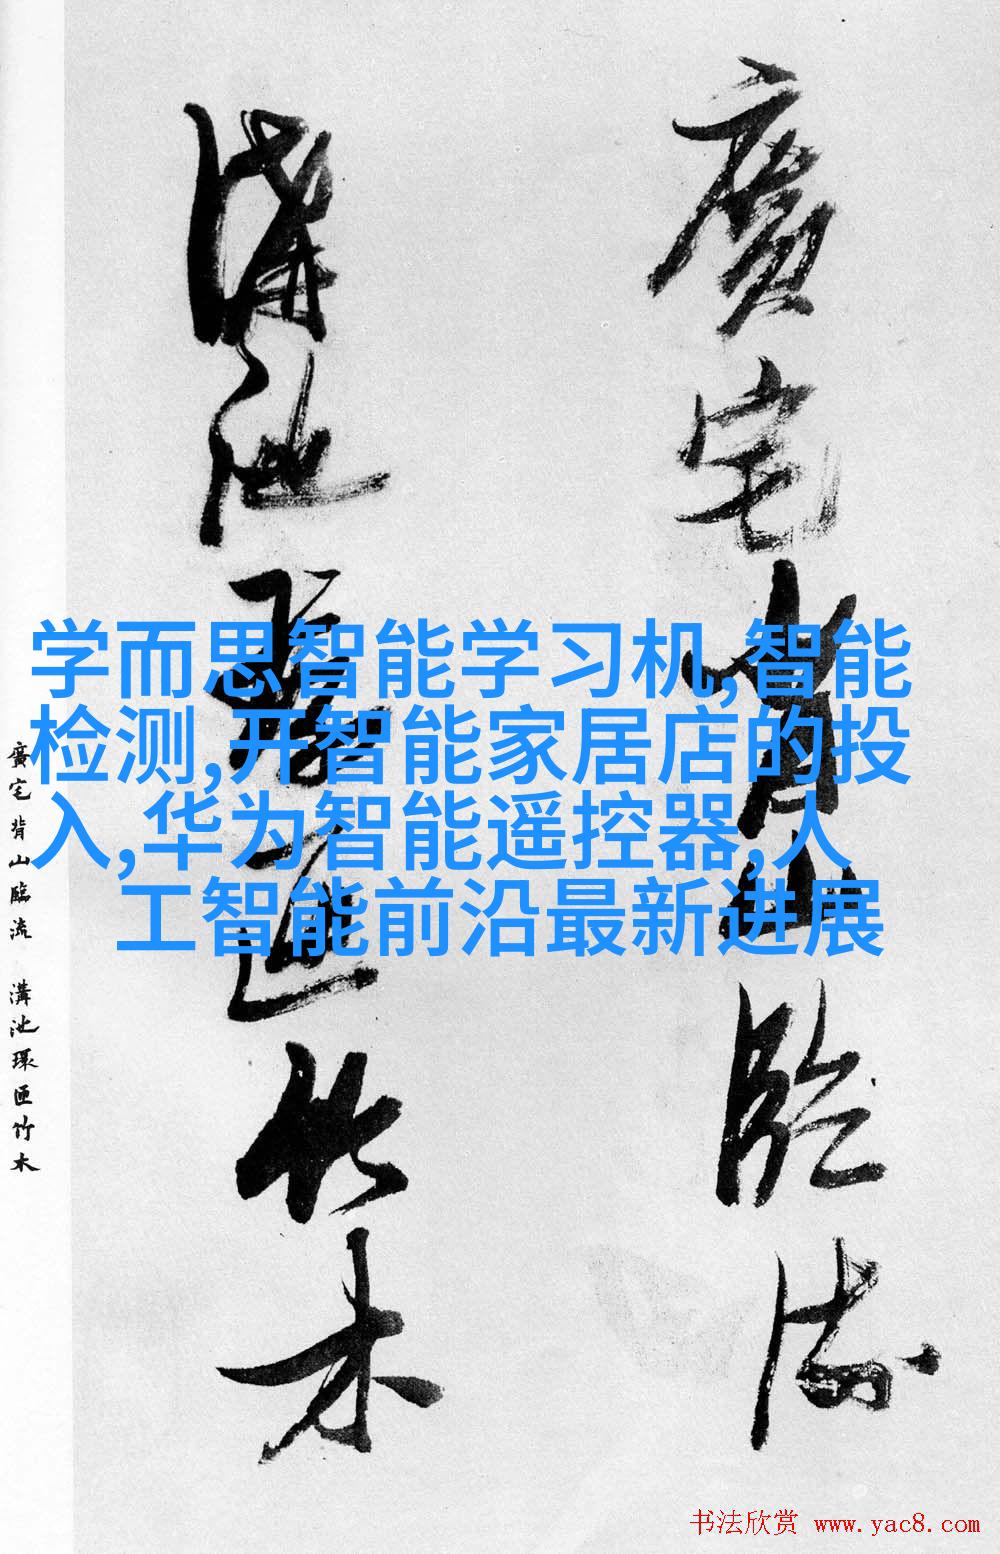 廣宅背山臨流
溝池環匝竹木
学而思智能学习机,智能
检测,开智能家居店的投
入,华为智能遥控器,人
工智能前沿最新进展
廣宅背山臨流 溝池環匝竹木
书法欣赏 www.yac8.com